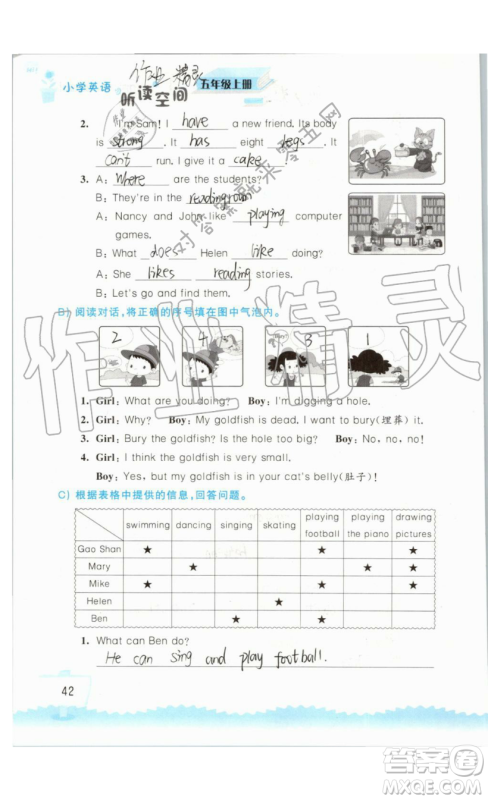 小学英语
作业精灵
五年级上册
听读空间
2. I'm Sam! I have a new friend. Its body
is strong. It has eight legs. It
can't run. I give it a cake!
3. A: Where are the students?
B: They're in the reading room
A: Nancy and John like playing computer
games.
B: What does Helen like doing?
A: She likes reading stories.
B: Let's go and find them.
B) 阅读对话,将正确的序号填在图中气泡内。
2 4 3 1
1. Girl: What are you doing? Boy: I'm digging a hole.
2. Girl: Why? Boy: My goldfish is dead. I want to bury(埋葬) it.
3. Girl: Bury the goldfish? Is the hole too big? Boy: No, no, no!
4. Girl: I think the goldfish is very small.
Boy: Yes, but my goldfish is in your cat's belly(肚子)!
C) 根据表格中提供的信息,回答问题。
swimming dancing singing skating playing football playing the piano drawing pictures
Gao Shan ★ ★ ★
Mary ★ ★
Mike ★ ★ ★
Helen ★
Ben ★ ★
1. What can Ben do?
He can sing and play football.
42
作业精灵
答案圈
MXQE.COM